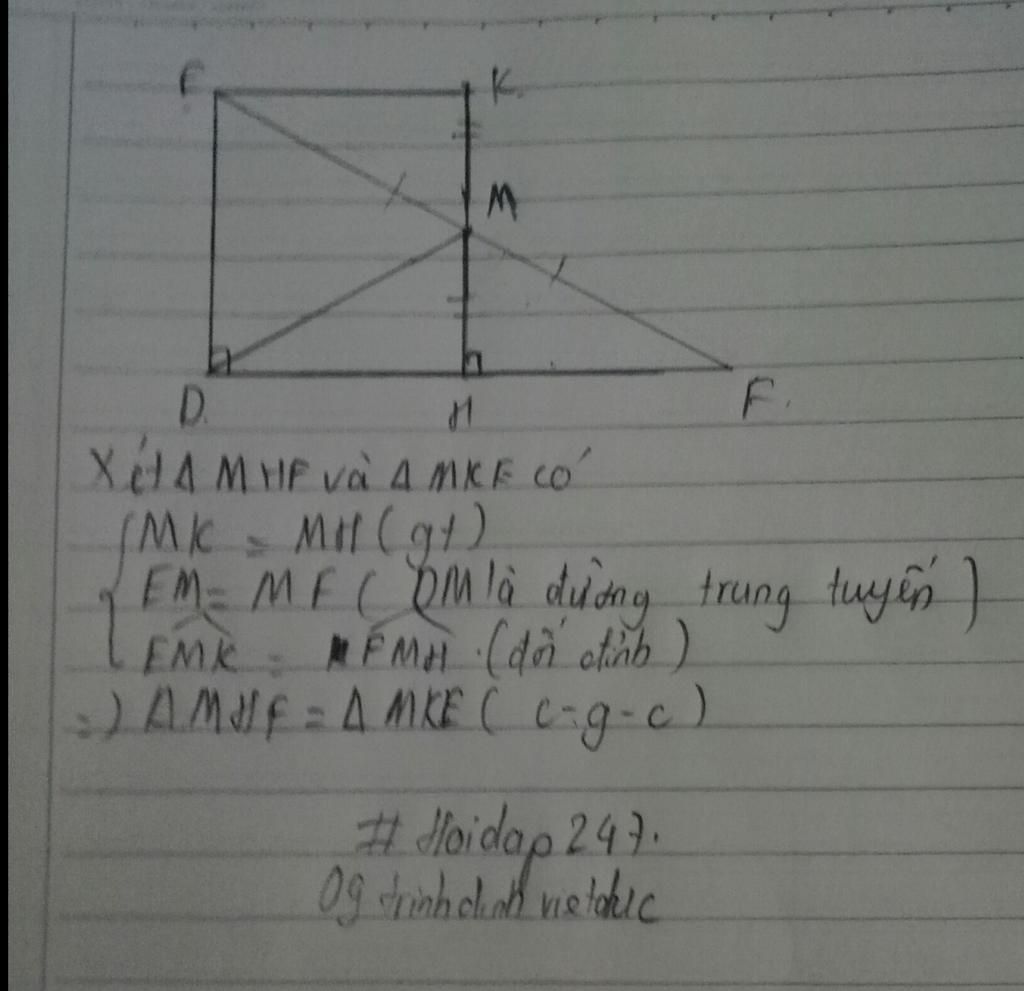 E K
M
D H F.
Xét Δ MHF và Δ MKE có
MK = MH (gt)
EM = MF ( DM là đường trung tuyến )
EMK = FMH. (đối đỉnh)
=) Δ MHF = Δ MKE ( c-g-c )
# Hoidap 247.